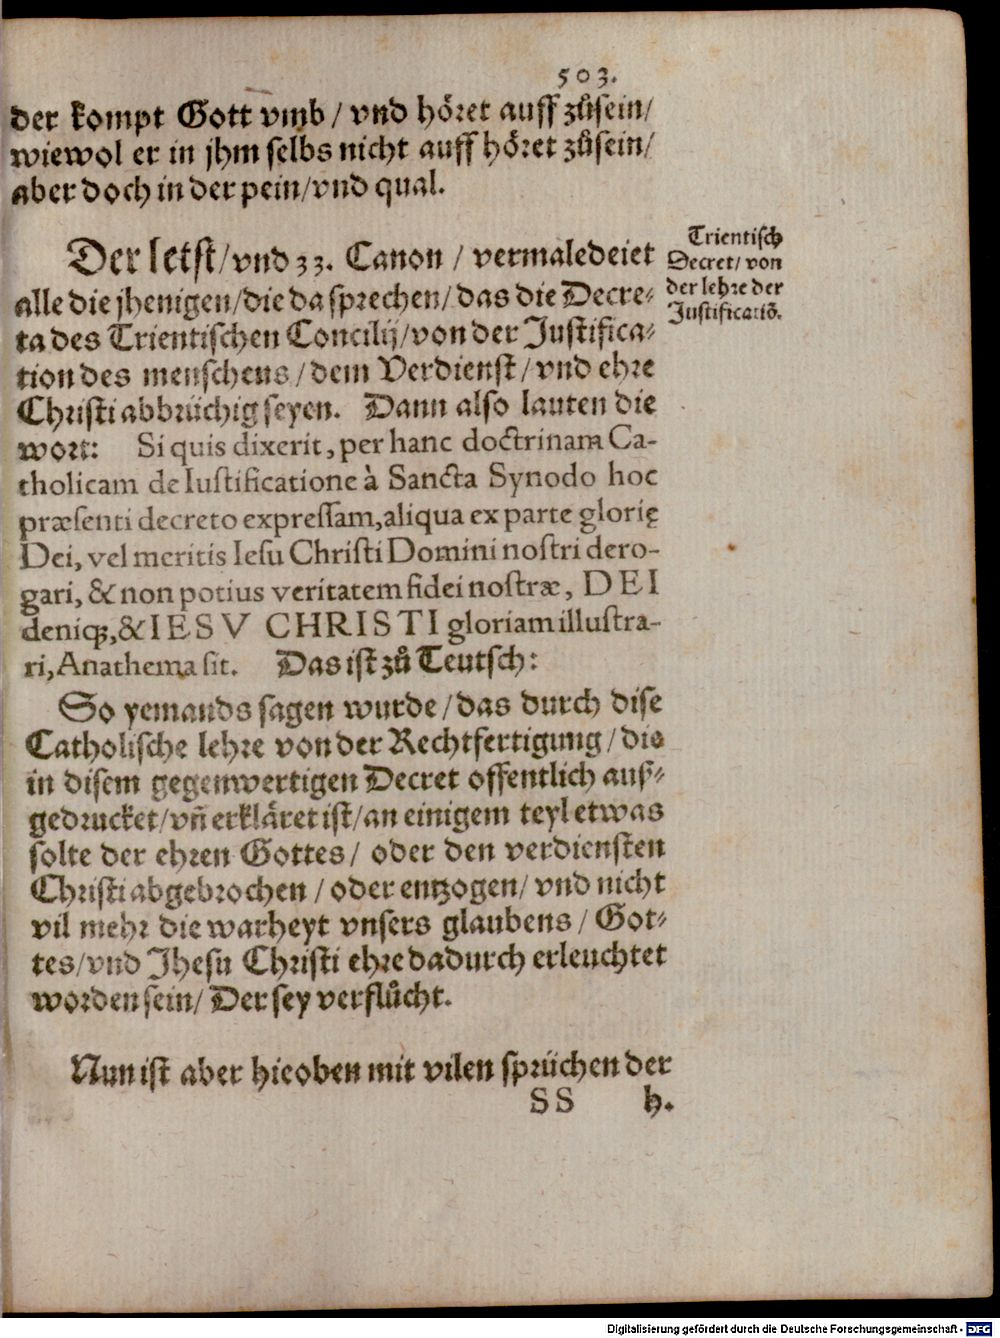 503.
der kompt Gott vmb / vnd hoͤret auff zůsein/
wiewol er in jhm selbs nicht auff hoͤret zůsein/
aber doch in der pein/vnd qual.
Der letst/vnd 33. Canon / vermaledeiet
alle die jhenigen/die da sprechen/das die Decre-
ta des Trientischen Concilij/von der Justifica-
tion des menschens/dem Verdienst/vnd ehre
Christi abbrüchig seyen. Dann also lauten die
wort: Si quis dixerit, per hanc doctrinam Ca-
tholicam de Iustificatione à Sancta Synodo hoc
præsenti decreto expressam, aliqua ex parte glorię
Dei, vel meritis Iesu Christi Domini nostri dero-
gari, & non potius veritatem fidei nostræ, DEI
deniq;, & IESV CHRISTI gloriam illustra-
ri, Anathema sit. Das ist zů Teutsch:
So yemands sagen wurde/das durch dise
Catholische lehre von der Rechtfertigung/die
in disem gegenwertigen Decret offentlich auß-
gedrucket/vñ erklaͤret ist/an einigem teyl etwas
solte der ehren Gottes/ oder den verdiensten
Christi abgebrochen / oder entzogen/ vnd nicht
vil mehr die warheyt vnsers glaubens / Got-
tes/vnd Jhesu Christi ehre dadurch erleuchtet
worden sein/ Der sey verflůcht.
Nun ist aber hieoben mit vilen sprüchen der
SS h.
Trientisch
Decret/ von
der lehre der
Justificatiõ.
Digitalisierung gefördert durch die Deutsche Forschungsgemeinschaft - DFG